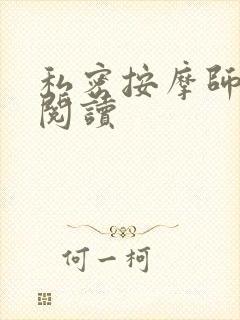 私密按摩師
閱讀
何一柯